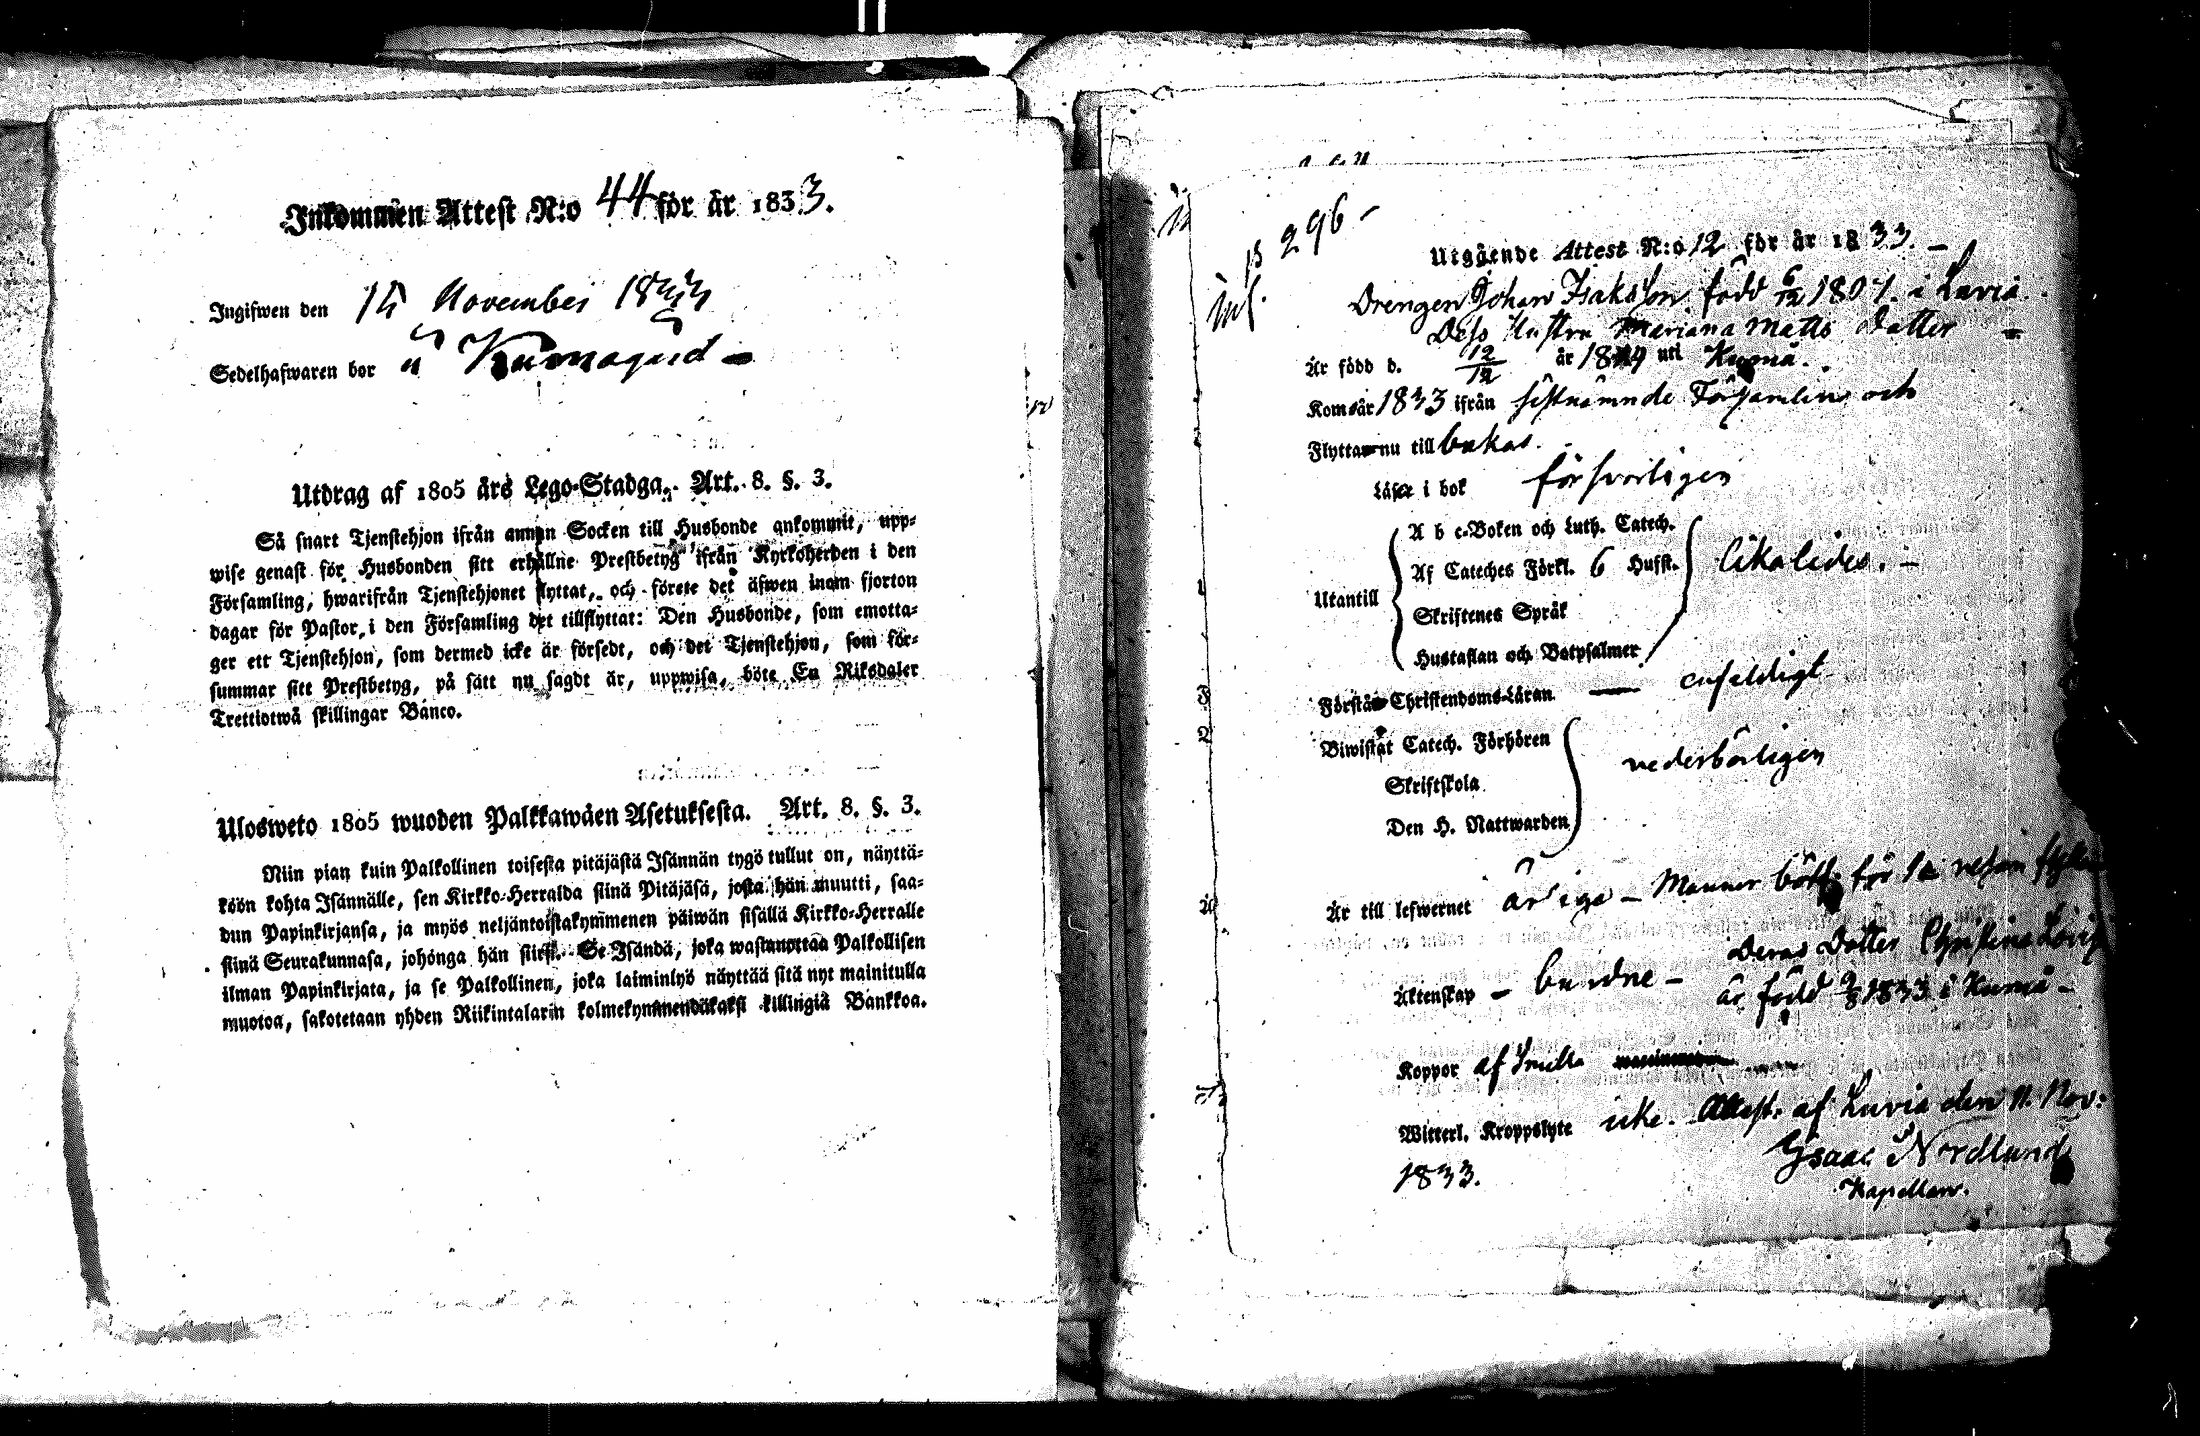 Inkommen Attest N:o 44 för år 1833.
Ingifwen den 15 November 1833
Sedelhafwaren bor å Kumogård
Utdrag af 1805 års Lego-Stadga, Art. 8. §. 3.
Så snart Tjenstehjon ifrån annan Socken till Husbonde ankommit, upp-
wise genast för Husbonden sitt erhållne Prestbetyg ifrån Kyrkoherden i den
Församling, hwarifrån Tjenstehjonet flyttat, och förete det äfwen inom fjorton
dagar för Pastor i den Församling det tillflyttat: Den Husbonde, som emotta-
ger ett Tjenstehjon, som dermed icke är försedt, och det Tjenstehjon, som för-
summar sitt Prestbetyg, på sätt nu sagdt är, uppwisa, böte En Riksdaler
Trettiotwå skillingar Banco.
Ulosweto 1805 wuoden Palkkawäen Asetuksesta. Art. 8. §. 3.
Niin pian kuin Palkollinen toisesta pitäjästä Isännän tygö tullut on, näyttä-
köön kohta Isännälle, sen Kirkko-Herralda siinä Pitäjäsä, josta hän muutti, saa-
dun Papinkirjansa, ja myös neljäntoistakymmenen päiwän sisällä Kirkko-Herralle
siinä Seurakunnasa, johonga hän siirsi. Se Isändä, joka wastanottaa Palkollisen
ilman Papinkirjata, ja se Palkollinen, joka laiminlyö näyttää sitä nyt mainitulla
muotoa, sakotetaan yhden Riikintalarin kolmekymmendäkaksi killingiä Bankkoa.
p 296
Utgående Attest N:o 12 för år 1833.
Drengen Johan Isaksson född 6/12 1807. i Luvia.
Dess Hustru Mariana Matts dotter
Är född d. 12/12 år 18 9 uti Kumå.
Kom år 1833 ifrån sistnämnde Församling och
Flyttar nu till bakas.
Läser i bok försvarligen
A b c-Boken och Luth. Catech.
Af Cateches Förkl. 6 Hufst. likaledes.
Utantill
Skriftenes Språk
Hustaflan och Botpsalmer
Förstår Christendoms-Läran — enfaldigt
Biwistat Catech. Förhören
vederbörligen
Skriftskola
Den H. Nattwarden
Är till lefwernet ärliga - Mannen bött för
Deras Dotter Christina Lovis
Äktenskap - bundne -
är född 9/8 1833 i Kumå -
Koppor af
Witterl. Kroppslyte icke. Attest. af Luvia den 11. Nov:
1833. Isaac Nordlund
Kapellan.